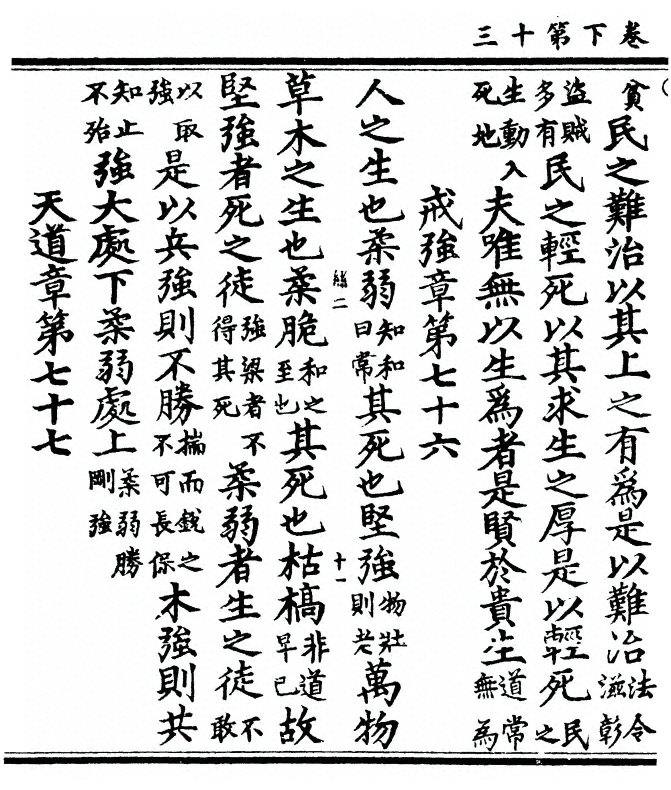 卷下第十三
貧民之難治以其上之有為是以難治法令滋彰
盜賊多有民之輕死以其求生之厚是以輕死民之
生動入死地夫唯無以生為者是賢於貴生道常無為
戒強章第七十六
二
十一
人之生也柔弱知和曰常其死也堅強物壯則老萬物
草木之生也柔脆和之至也其死也枯槁非道早已故
堅強者死之徒強梁者不得其死柔弱者生之徒不敢
以取強是以兵強則不勝揣而銳之不可長保木強則共
知止不殆強大處下柔弱處上柔弱勝剛強
天道章第七十七